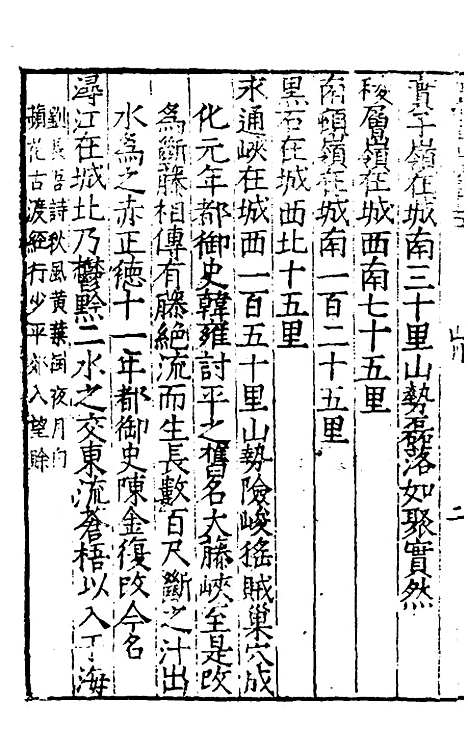 實子嶺在城南三十里山勢磊落如聚實然
稜層嶺在城西南七十五里
南頓嶺在城南一百二十五里
黑石在城西北十五里
永通峽在城西一百五十里山勢險峻猺賊巢穴成
化元年都御史韓雍討平之舊名大藤峽至是改
為斷藤相傳有藤絕流而生長數百尺斷之汁出
水為之赤正德十一年都御史陳金復改今名
潯江在城北乃鬱黔二水之交東流蒼梧以入于海
劉長吾詩秋風黃葉夜月白
蘋花古渡經行少平郊入望賒
山川
二